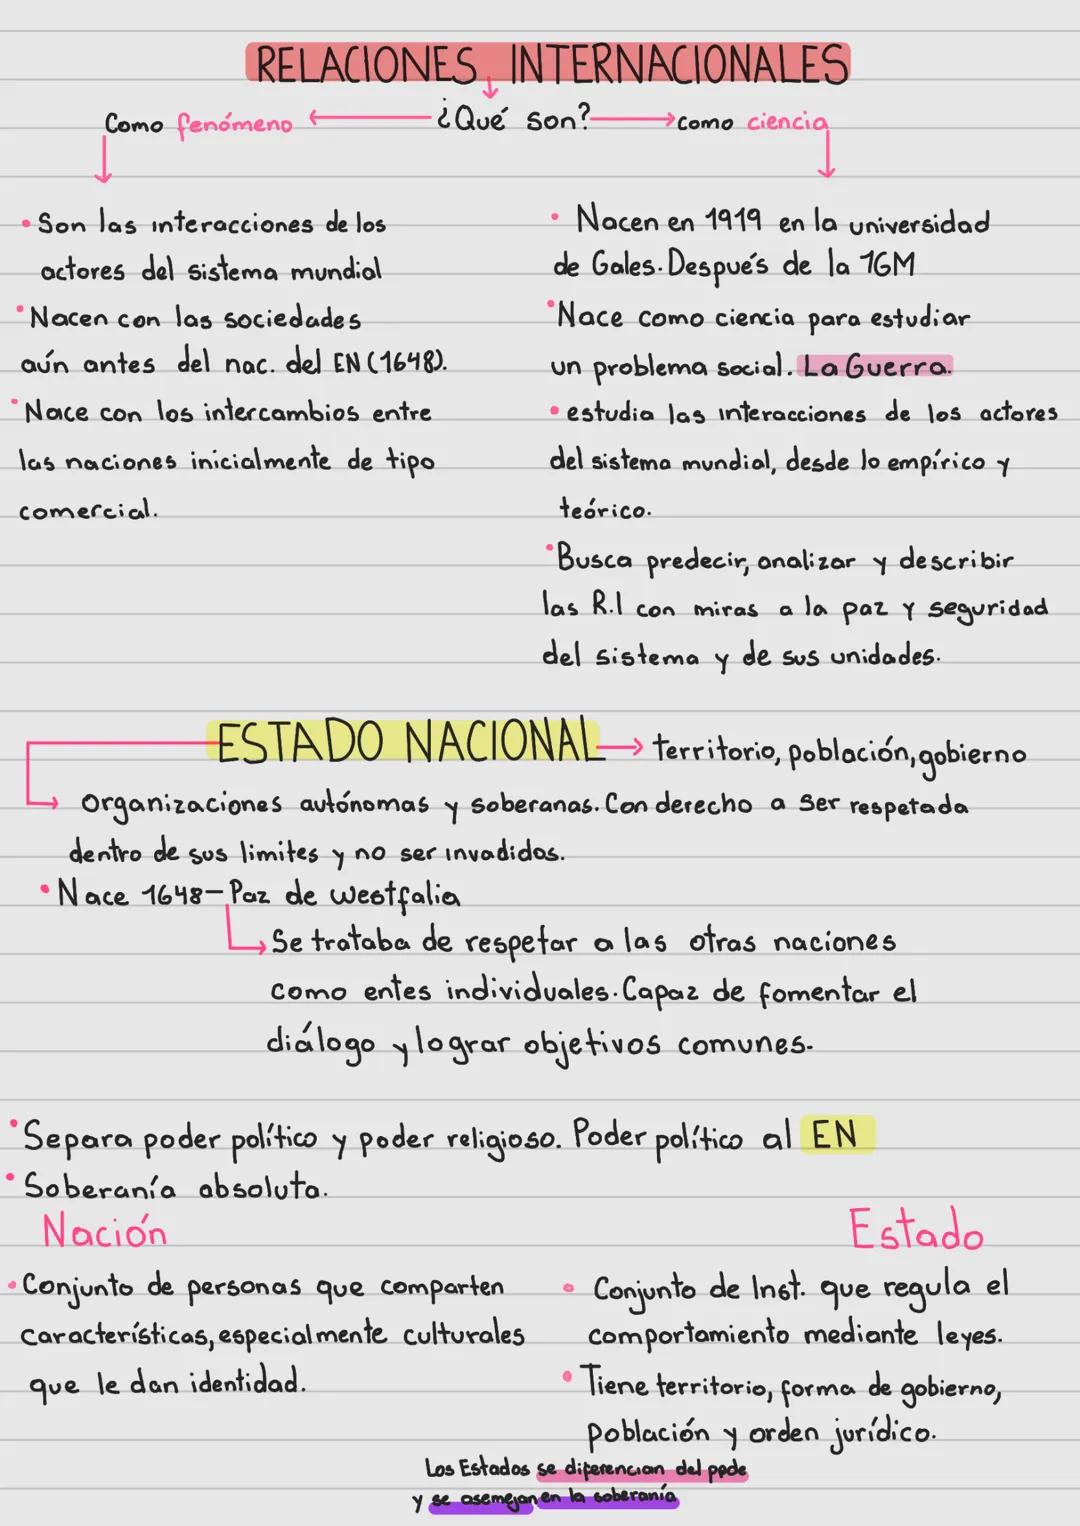 RELACIONES INTERNACIONALES
Como fenómeno
¿Qué son?
como ciencia
• Son las interacciones de los
actores del sistema mundial
• Nacen con las sociedades
aún antes del nac. del EN (1648).
• Nace con los intercambios entre
las naciones inicialmente de tipo
comercial.
• Nacen en 1919 en la universidad
de Gales. Después de la 1GM
• Nace como ciencia para estudiar
un problema social. La Guerra.
• estudia las interacciones de los actores
del sistema mundial, desde lo empírico y
teórico.
• Busca predecir, analizar y describir
las R.I con miras a la paz y seguridad
del sistema y de sus unidades.
ESTADO NACIONAL → territorio, población, gobierno
Organizaciones autónomas y soberanas. Con derecho a ser respetada
dentro de sus limites y no ser invadidas.
• Nace 1648- Paz de westfalia
Se trataba de respetar a las otras naciones
como entes individuales. Capaz de fomentar el
diálogo y lograr objetivos comunes.
• Separa poder político y poder religioso. Poder político al EN
• Soberanía absoluta.
Nación
• Conjunto de personas que comparten
características, especialmente culturales
que le dan identidad.
Estado
• Conjunto de Inst. que regula el
comportamiento mediante leyes.
• Tiene territorio, forma de gobierno,
población y orden jurídico.
Los Estados se diferencian del ppde
y se asemejan en la soberanía